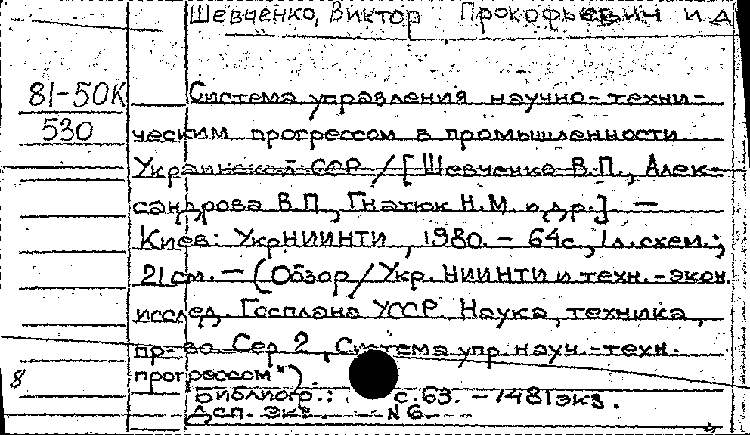 Шевченко, Виктор Прокофьевич и д
81-50К
530
Система управления научно-техни-
ческим прогрессом в промышленности
Украинской ССР / [Шевченко В.П., Алек-
сандрова В.П., Гнатюк Н.М. и др.] —
Киев: УкрНИИНТИ, 1980. - 64с., 1л.схем.;
21см. — (Обзор / Укр. НИИНТИ и техн.-экон.
исслед. Госплана УССР. Наука, техника,
пр-во Сер 2, Система упр. науч.-техн.
прогрессом").
8
Библиогр.: с.63. - 1481экз.
Дсп. экз. N 6.